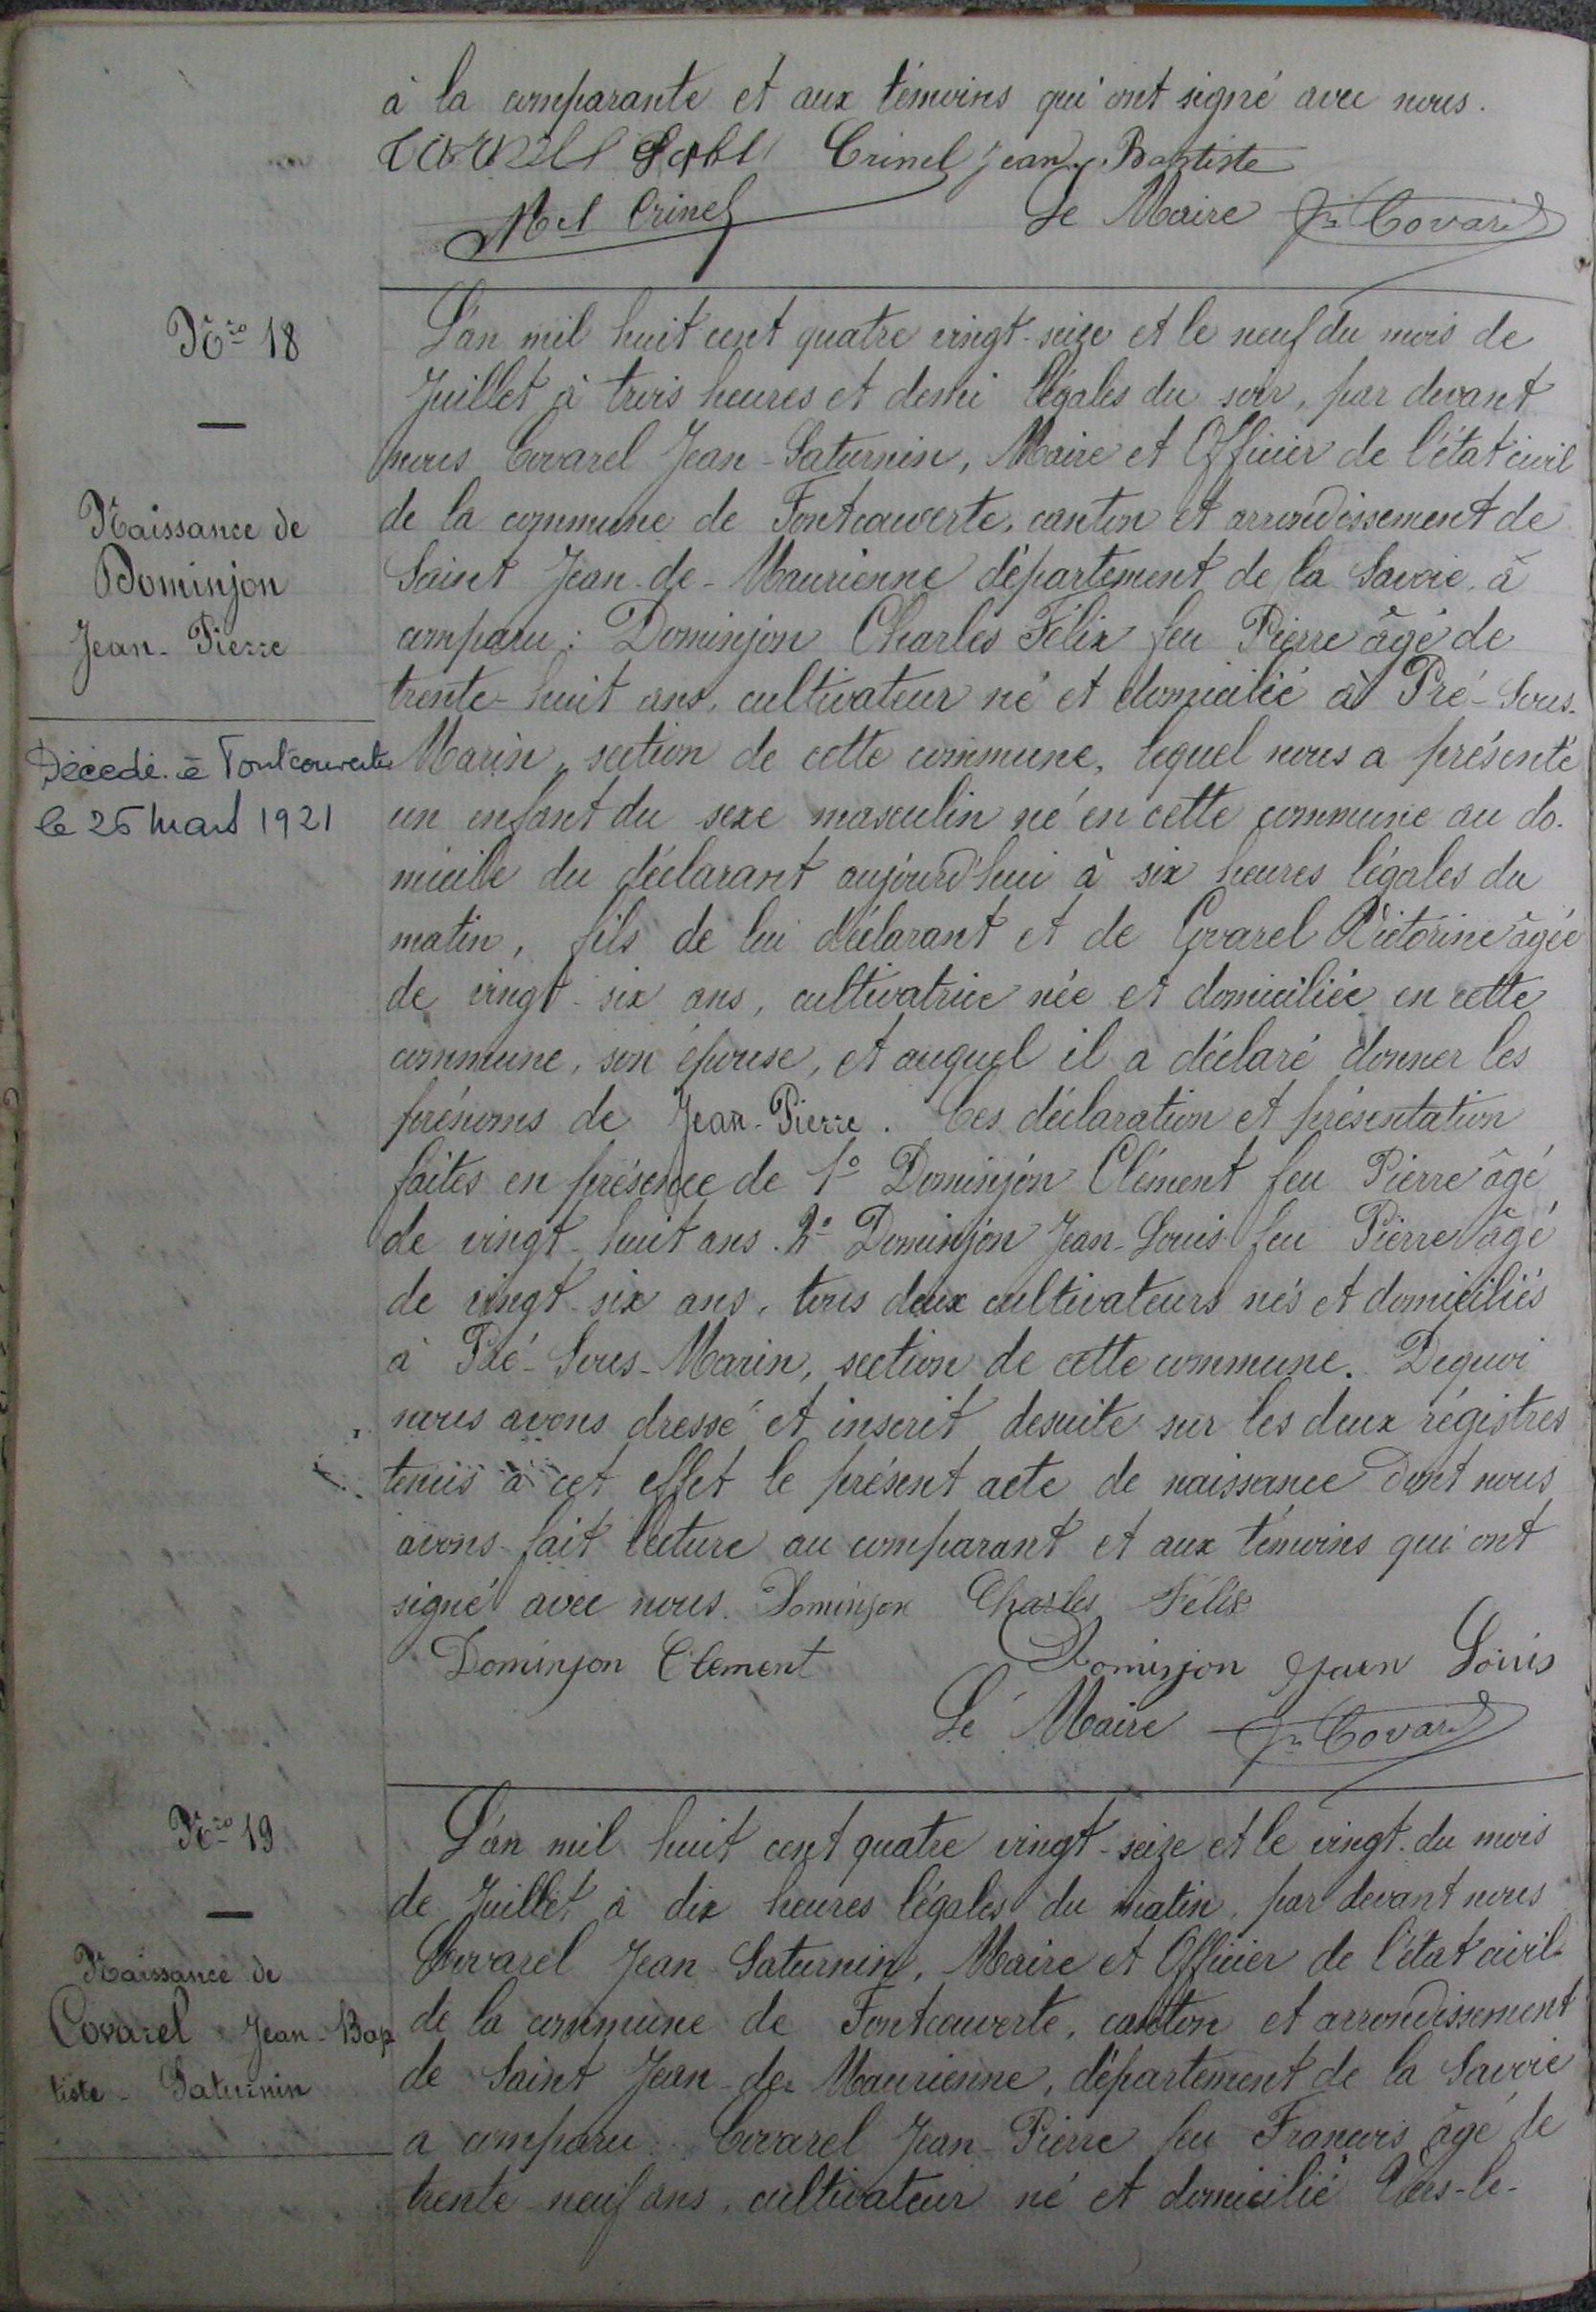 à la comparante et aux témoins qui ont signé avec nous.
Crinel Jean Baptiste
Crinel
Le Maire Jn Covarel
Nro 18
Naissance de
Dominjon
Jean-Pierre
Décédé à Fontcouverte
le 26 mars 1921
L'an mil huit cent quatre vingt-seize et le neuf du mois de
Juillet à trois heures et demi légales du soir, par devant
nous Covarel Jean-Saturnin, Maire et Officier de l'état civil
de la commune de Fontcouverte, canton et arrondissement de
Saint Jean-de-Maurienne département de la Savoie, à
comparu: Dominjon Charles Félix feu Pierre âgé de
trente-huit ans, cultivateur né et domicilié à Pré-Sous-
Marin, section de cette commune, lequel nous a présenté
un enfant du sexe masculin né en cette commune au do-
micile du déclarant aujourd'hui à six heures légales du
matin, fils de lui déclarant et de Covarel Victorine âgée
de vingt-six ans, cultivatrice née et domiciliée en cette
commune, son épouse, et auquel il a déclaré donner les
prénoms de Jean-Pierre. Ces déclaration et présentation
faites en présence de 1° Dominjon Clément feu Pierre âgé
de vingt-huit ans. 2° Dominjon Jean-Louis feu Pierre âgé
de vingt-six ans, tous deux cultivateurs nés et domiciliés
à Pré-Sous-Marin, section de cette commune. Dequoi
nous avons dressé et inscrit desuite sur les deux régistres
tenus à cet effet le présent acte de naissance dont nous
avons fait lecture au comparant et aux témoins qui ont
signé avec nous. Dominjon Charles Félix
Dominjon Clement Dominjon Jean Louis
Le Maire Jn Covarel
Nro 19
Naissance de
Covarel Jean-Bap
tiste-Saturnin
L'an mil huit cent quatre vingt-seize et le vingt du mois
de Juillet à dix heures légales du matin, par devant nous
Covarel Jean Saturnin, Maire et Officier de l'état civil
de la commune de Fontcouverte, canton et arrondissement
de Saint Jean-de-Maurienne, département de la Savoie
a comparu Covarel Jean-Pierre feu François âgé de
trente-neuf ans, cultivateur né et domicilié Vers-le-